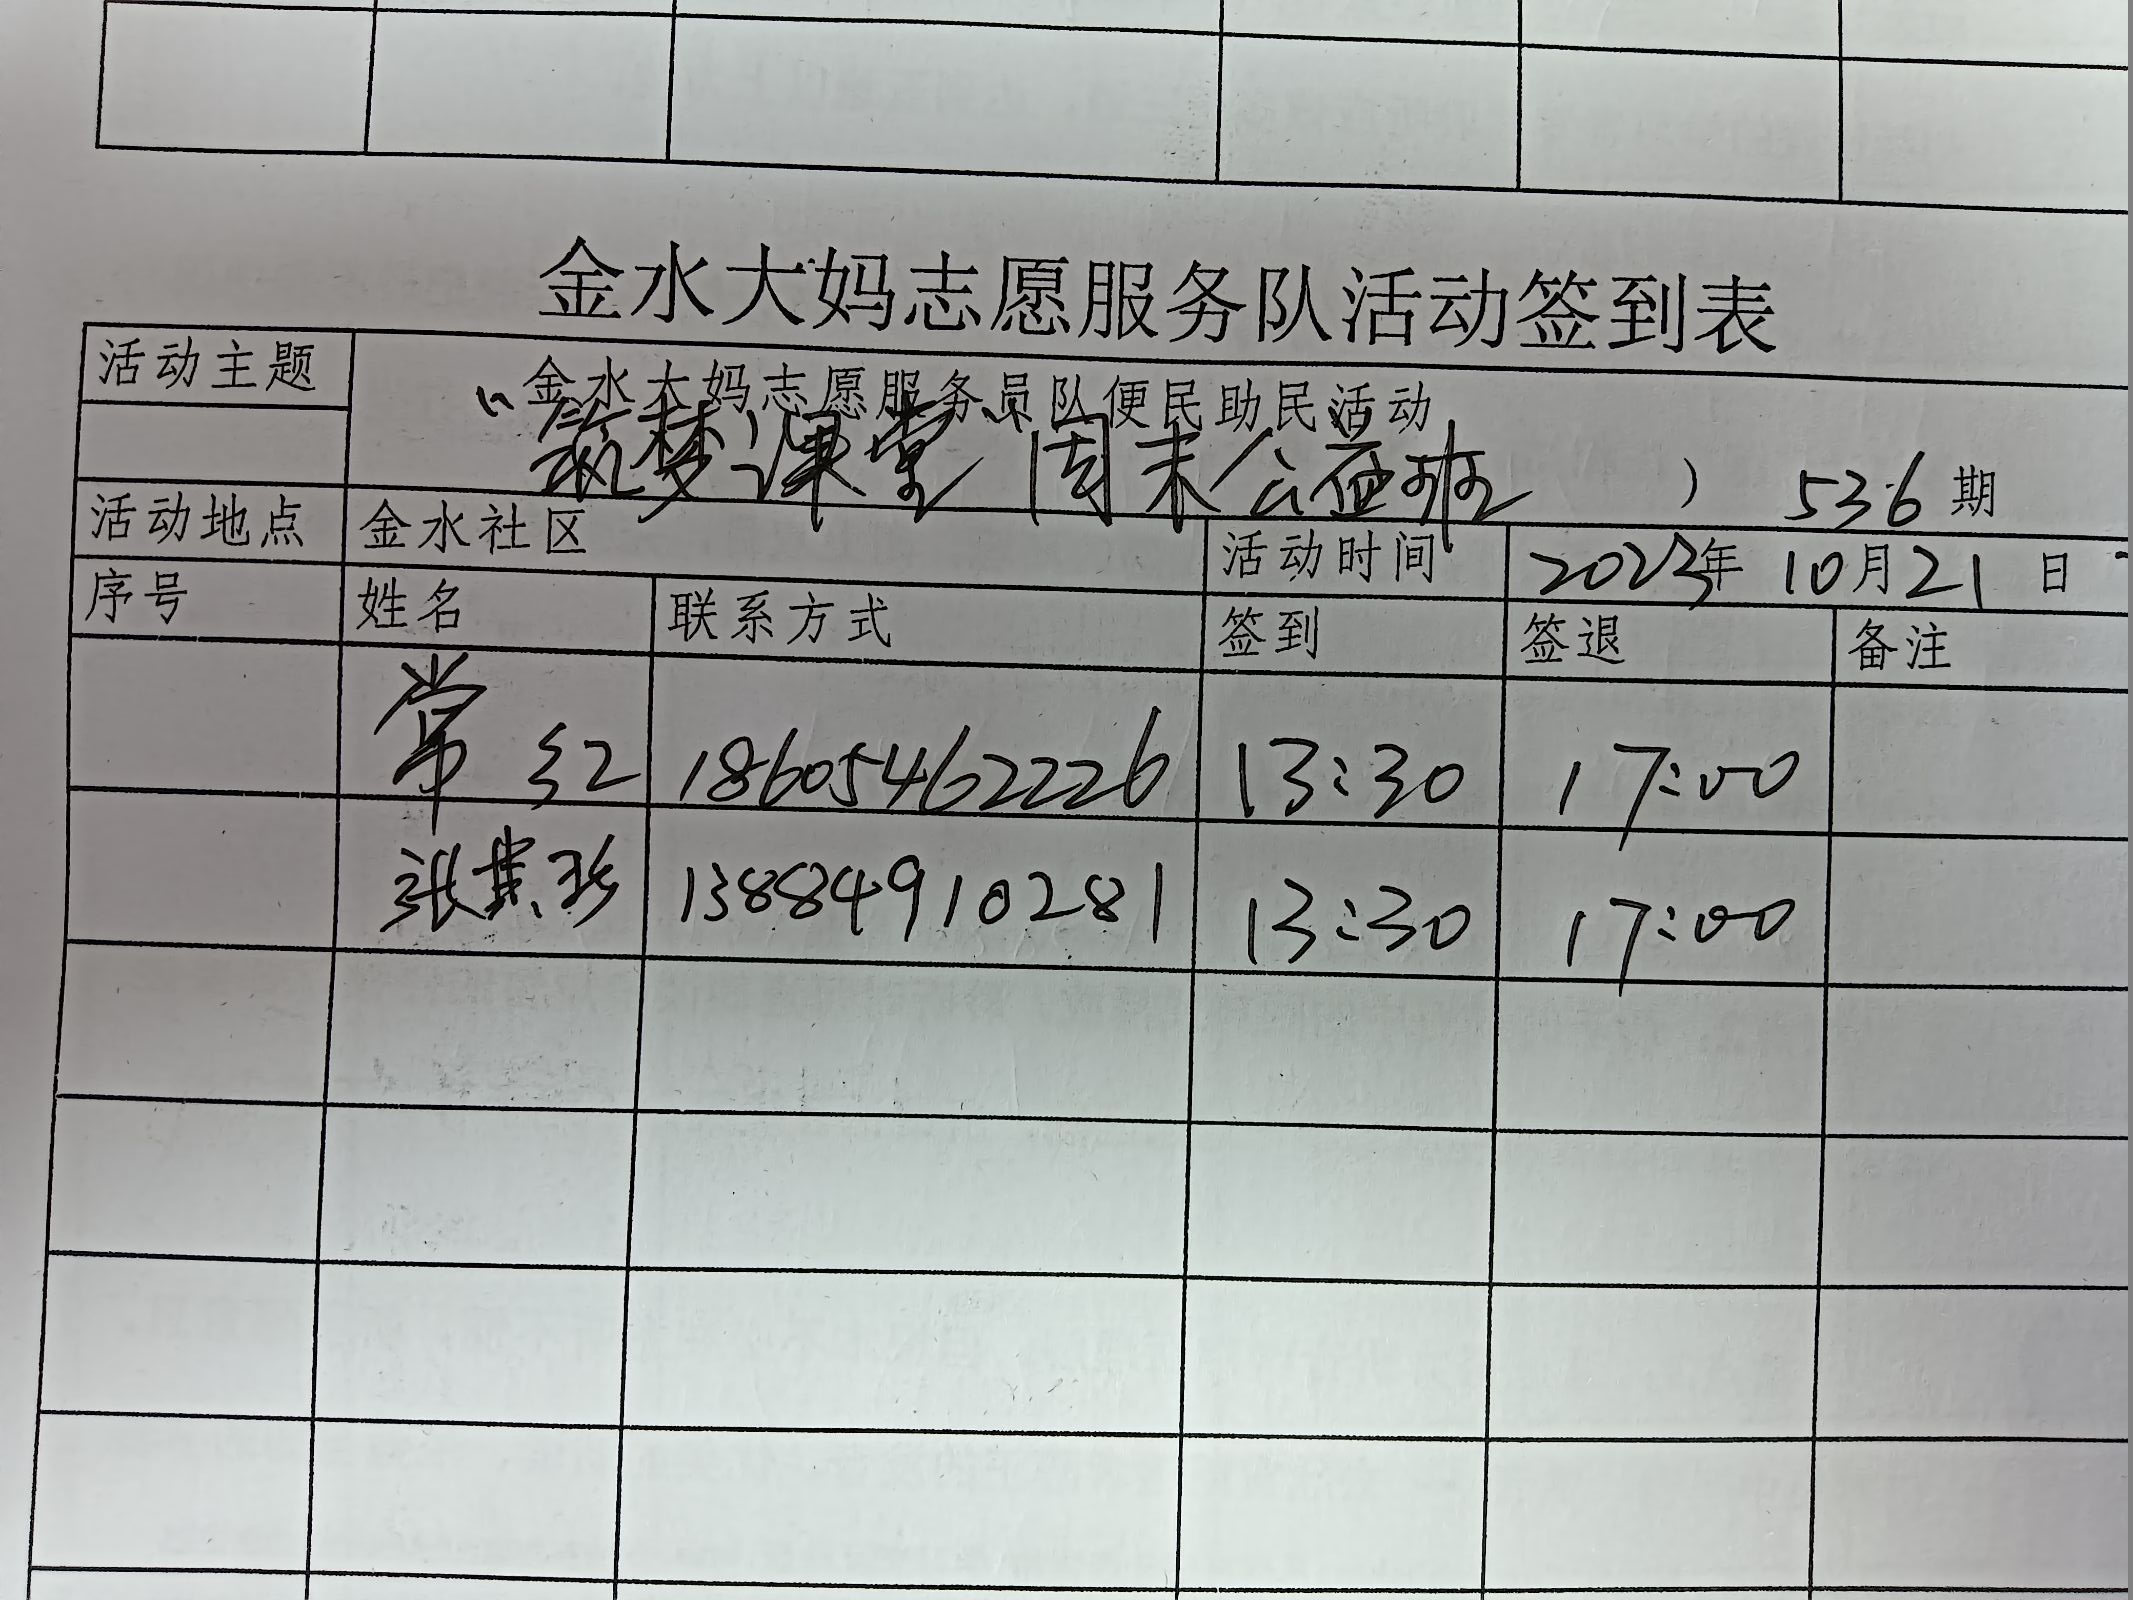 金水大妈志愿服务队活动签到表
活动主题
金水大妈志愿服务员队便民助民活动
"筑梦课堂"周末公益班 ) 536期
活动地点 金水社区 活动时间 2023年10月21日
序号 姓名 联系方式 签到 签退 备注
常红 18605462226 13:30 17:00
张 珍 13884910281 13:30 17:00